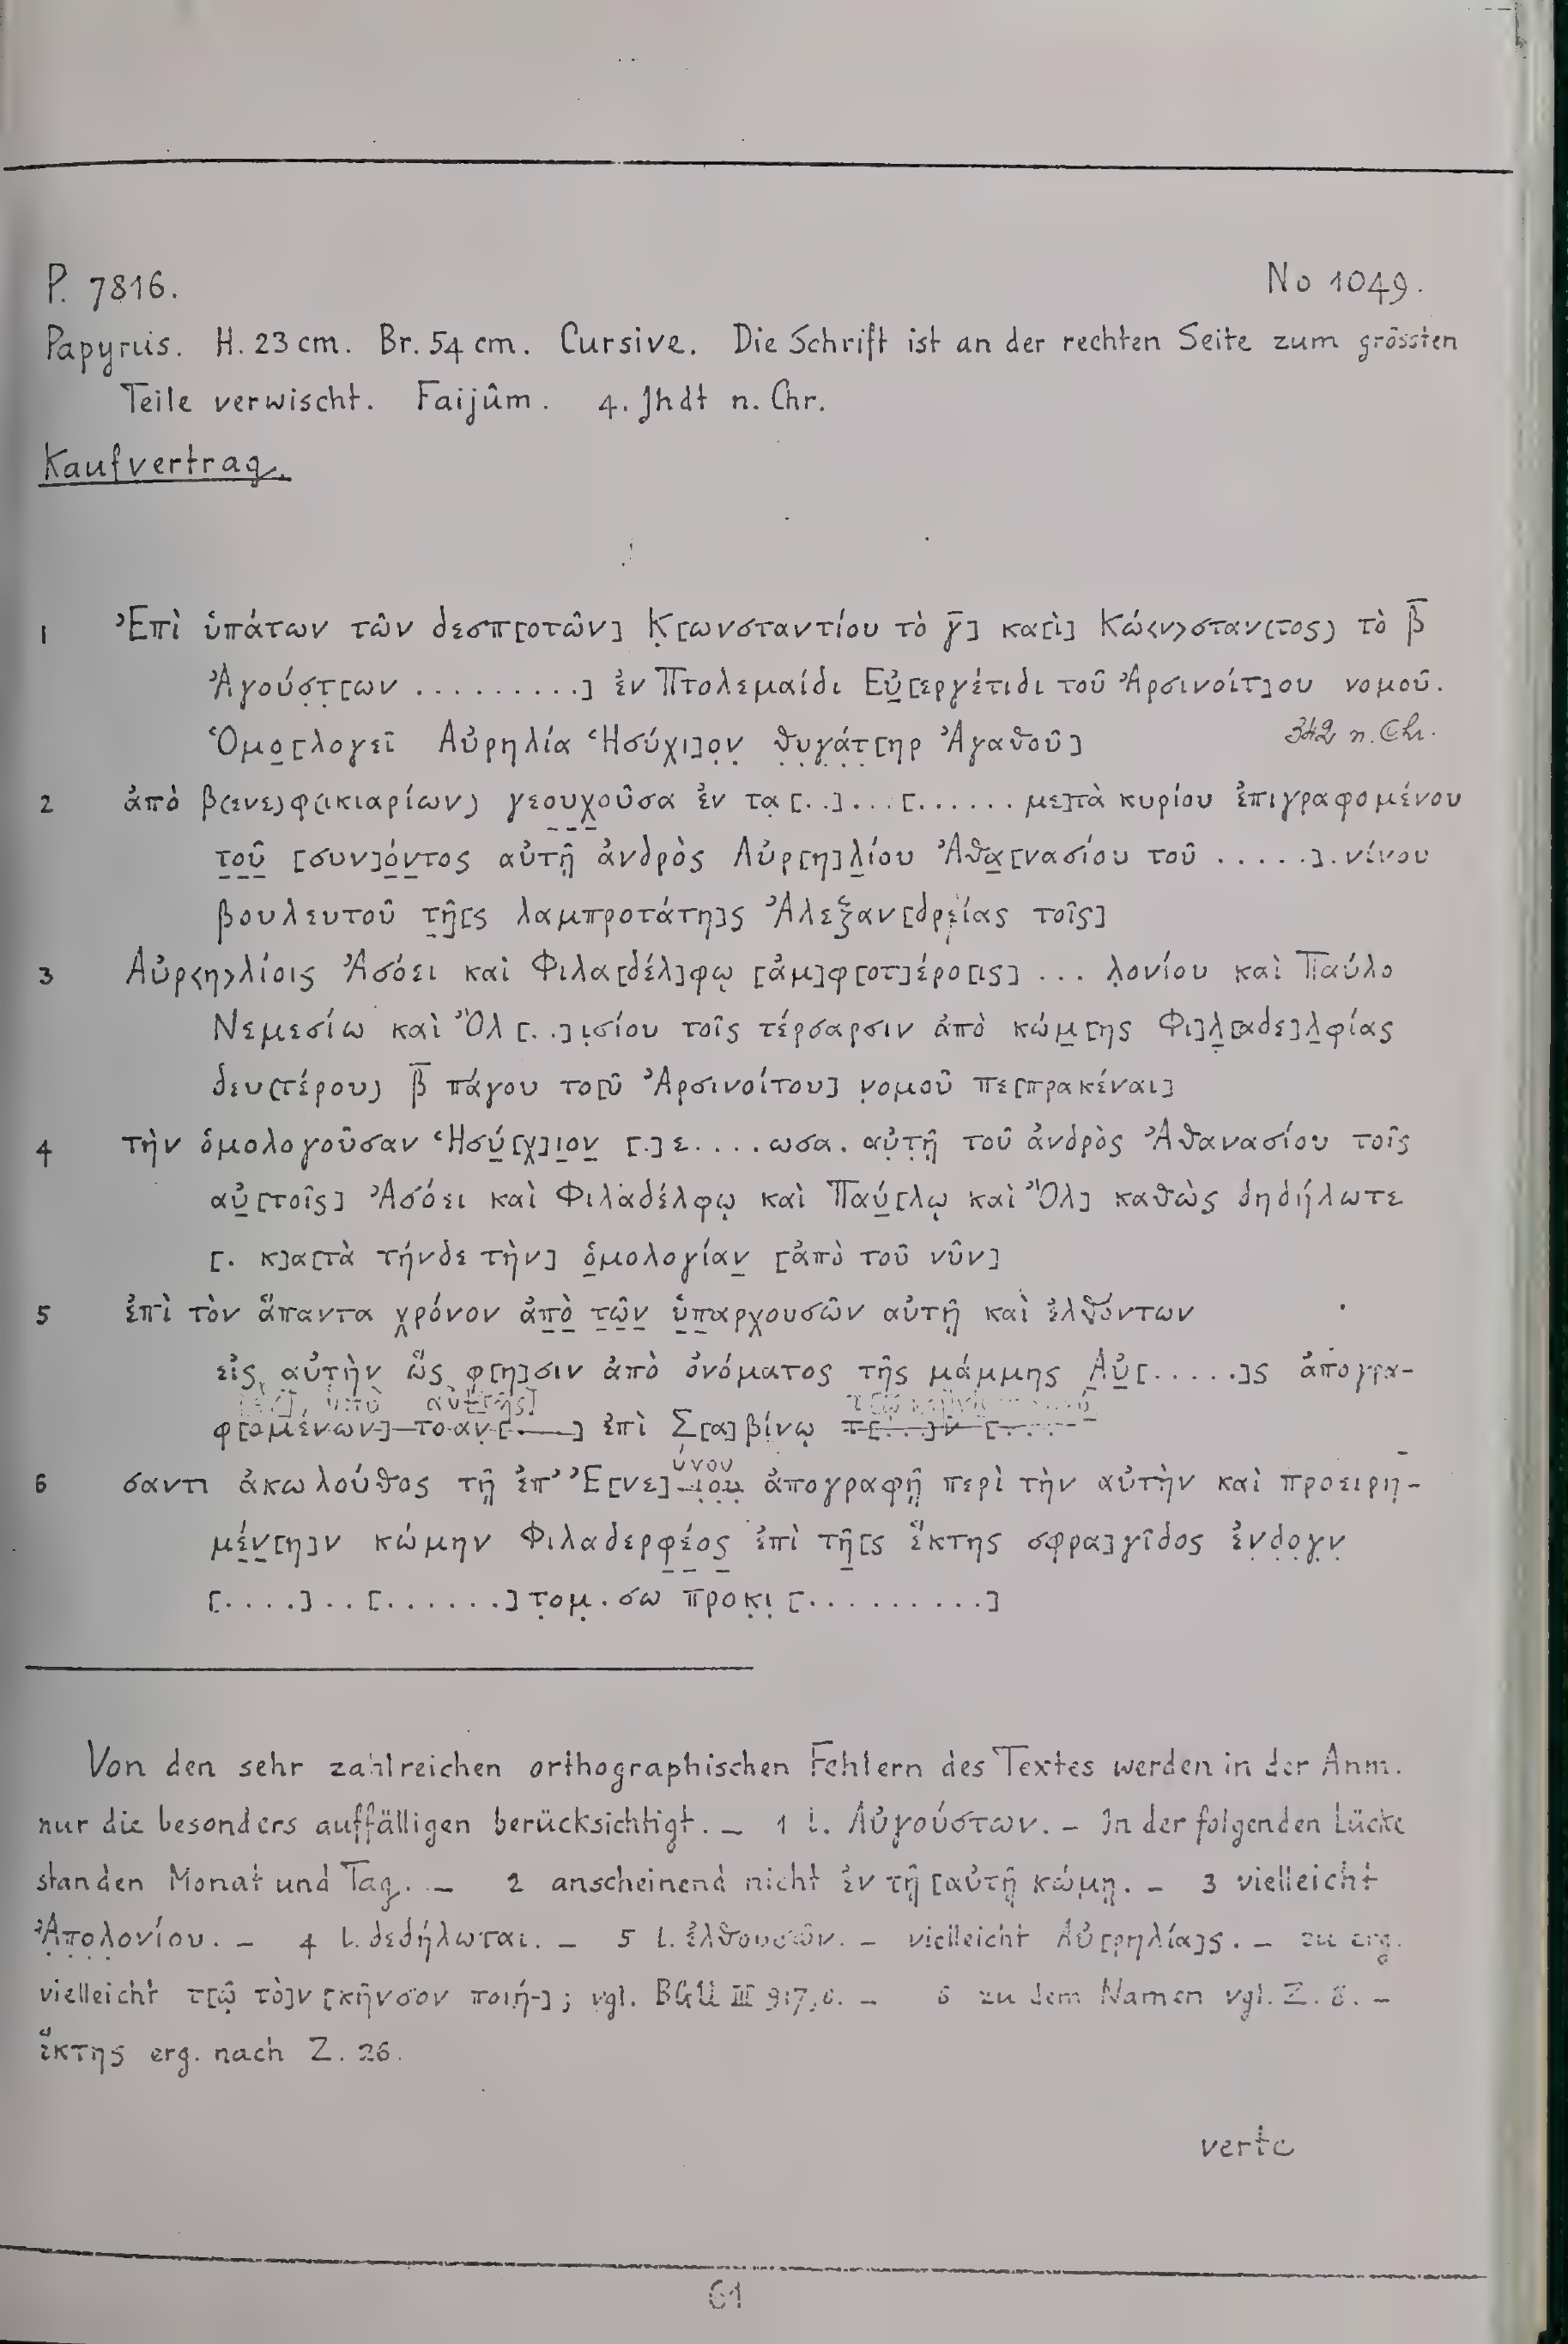 P. 7816. No 1049.
Papyrus. H. 23 cm. Br. 54 cm. Cursive. Die Schrift ist an der rechten Seite zum grössten
Teile verwischt. Faijûm. 4. Jhdt n. Chr.
Kaufvertrag.
1 Ἐπὶ ὑπάτων τῶν δεσπ[οτῶν] Κ̣[ωνσταντίου τὸ γ̅] κα[ὶ] Κώ<ν>σταν(τος) τὸ β̅
Ἀγούσ̣τ̣[ων .........] ἐν Πτολεμαίδι Εὐ̣[εργέτιδι τοῦ Ἀρσινοίτ]ου νομοῦ.
Ὁμο̣[λογεῖ Αὐρηλία Ἡσύχι]ο̣ν̣ θ̣υ̣γ̣ά̣τ̣[ηρ Ἀγαθοῦ] 342 n. Chr.
2 ἀπὸ β(ενε)φ(ικιαρίων) γεουχοῦσα ἐν τα̣[..]...[...... με]τὰ κυρίου ἐπιγραφομένου
τοῦ [συν]όντος αὐτῇ ἀνδρὸς Αὐρ[η]λίου Ἀθα[νασίου τοῦ .....].νίνου
βουλευτοῦ τῆ[ς λαμπροτάτη]ς Ἀλεξαν[δρείας τοῖς]
3 Αὐρ<η>λίοις Ἀσόει καὶ Φιλα[δέλ]φῳ [ἀμ]φ[οτ]έρο[ις] ... λ̣ονίου καὶ Παύλο
Νεμεσίω καὶ Ὂλ[..]ι̣σίου τοῖς τέρσαρσιν ἀπὸ κώμ[ης Φι]λ̣[αδε]λφίας
δευ(τέρου) β̅ πάγου το[ῦ Ἀρσινοίτου] ν̣ομοῦ πε[πρακέναι]
4 τὴν ὁμολογοῦσαν Ἡσύ[χ]ιον [.]ε....ωσα. αὐ̣τ̣ῇ̣ τοῦ ἀνδρὸς Ἀθανασίου τοῖς
αὐ[τοῖς] Ἀσόει καὶ Φιλαδέλφῳ καὶ Παύ[λῳ καὶ Ὂλ] καθὼς δηδήλωτε
[. κ]α[τὰ τήνδε τὴν] ὁμολογίαν [ἀπὸ τοῦ νῦν]
5 ἐπὶ τὸν ἅπαντα χρόνον ἀπὸ τῶν ὑπαρχουσῶν αὐτῇ καὶ ἐλθόντων
εἰς αὐτὴν ὥς φ[η]σιν ἀπὸ ὀνόματος τῆς μάμμης Αὐ[.....]ς ἀπογρα-
ὑπὸ αὐτ[ῆς]
φ[ομένων] το αν̣[....] ἐπὶ Σ[α]βίνῳ τ[...]ν [....
ύνου
6 σαντι ἀκωλούθος τῇ ἐπ’ Ἐ[νε]ι̣ο̣υ̣ ἀπογραφῇ περὶ τὴν αὐτὴν καὶ προειρη-
μέν[η]ν κώμην Φιλαδερφέος ἐπὶ τῆ[ς ἕκτης σφρα]γῖδος ἐν̣δ̣ο̣γ̣ν̣
[....]..[......]τ̣ομ̣.σω προκ̣ι̣[.........]
Von den sehr zahlreichen orthographischen Fehlern des Textes werden in der Anm.
nur die besonders auffälligen berücksichtigt. – 1 l. Αὐγούστων. – In der folgenden Lücke
standen Monat und Tag. – 2 anscheinend nicht ἐν τῇ [αὐτῇ κώμῃ. – 3 vielleicht
Ἀ̣π̣ο̣λονίου. – 4 l. δεδήλωται. – 5 l. ἐλθουσῶν. – vielleicht Αὐ[ρηλία]ς. – zu erg.
vielleicht τ[ῷ τὸ]ν [κῆνσον ποιή-]; vgl. BGU III 917,6. – 6 zu dem Namen vgl. Z. 8. –
ἕκτης erg. nach Z. 26.
verte
61